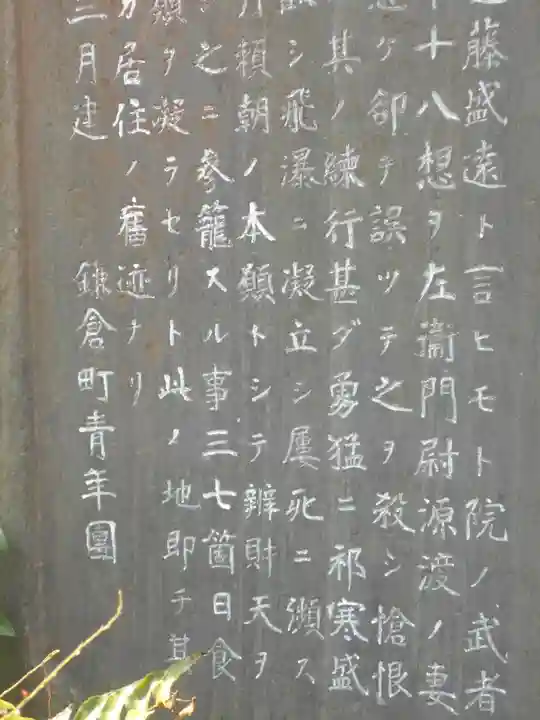 藤盛遠ト言ヒモト院ノ武者
十八想ヲ左衞門尉源渡ノ妻
ケ卻テ誤ツテ之ヲ殺シ愴恨
其ノ練行甚ダ勇猛ニ祁寒盛
シ飛瀑ニ凝立シ屢死ニ瀕ス
賴朝ノ本願トシテ辨財天ヲ
之ニ參籠スル事三七箇日食
ヲ凝ラセリト此ノ地即チ其
居住ノ舊迹ナリ
三月建 鎌倉町青年團